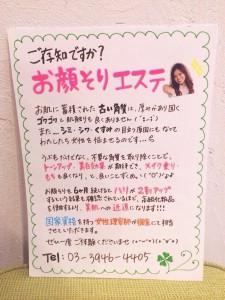 ご存知ですか?
お顔そりエステ
お肌に蓄積された古い角質は、厚みがあり固く
ゴワゴワと肌触りも良くありません
また…シミ・シワ・くすみの目立つ原因にもなって
わたしたち女性を悩ませるのです…
うぶ毛だけでなく、不要な角質を取り除くことで、
トーンアップ、美白効果が期待でき、メイク乗り・
もちも良くなり、と、良いことずくめ
お顔そりを6ヶ月続けると ハリが2割アップ
するという結果も確認されているほど、
を使用するより、美肌への近道になります!!!
国家資格を持つ女性理容師が個室にて担当
させていただきます。
ぜひ一度ご体験くださいませ
Tel: 03-3946-4405